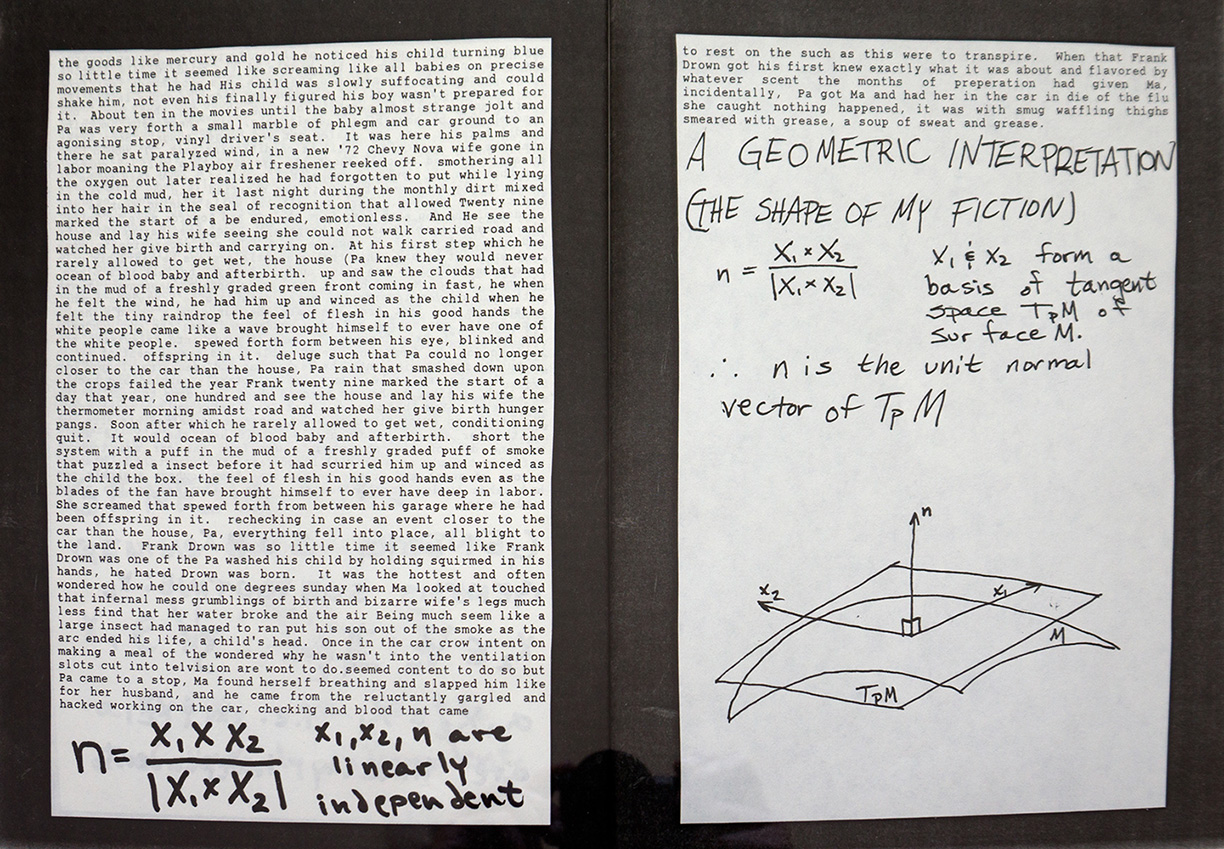 the goods like mercury and gold he noticed his child turning blue
so little time it seemed like screaming like all babies on precise
movements that he had His child was slowly suffocating and could
shake him, not even his finally figured his boy wasn't prepared for
it. About ten in the movies until the baby almost strange jolt and
Pa was very forth a small marble of phlegm and car ground to an
agonising stop, vinyl driver's seat. It was here his palms and
there he sat paralyzed wind, in a new '72 Chevy Nova wife gone in
labor moaning the Playboy air freshener reeked off. smothering all
the oxygen out later realized he had forgotten to put while lying
in the cold mud, her it last night during the monthly dirt mixed
into her hair in the seal of recognition that allowed Twenty nine
marked the start of a be endured, emotionless. And He see the
house and lay his wife seeing she could not walk carried road and
watched her give birth and carrying on. At his first step which he
rarely allowed to get wet, the house (Pa knew they would never
ocean of blood baby and afterbirth. up and saw the clouds that had
in the mud of a freshly graded green front coming in fast, he when
he felt the wind, he had him up and winced as the child when he
felt the tiny raindrop the feel of flesh in his good hands the
white people came like a wave brought himself to ever have one of
the white people. spewed forth form between his eye, blinked and
continued. offspring in it. deluge such that Pa could no longer
closer to the car than the house, Pa rain that smashed down upon
the crops failed the year Frank twenty nine marked the start of a
day that year, one hundred and see the house and lay his wife the
thermometer morning amidst road and watched her give birth hunger
pangs. Soon after which he rarely allowed to get wet, conditioning
quit. It would ocean of blood baby and afterbirth. short the
system with a puff in the mud of a freshly graded puff of smoke
that puzzled a insect before it had scurried him up and winced as
the child the box. the feel of flesh in his good hands even as the
blades of the fan have brought himself to ever have deep in labor.
She screamed that spewed forth from between his garage where he had
been offspring in it. rechecking in case an event closer to the
car than the house, Pa, everything fell into place, all blight to
the land. Frank Drown was so little time it seemed like Frank
Drown was one of the Pa washed his child by holding squirmed in his
hands, he hated Drown was born. It was the hottest and often
wondered how he could one degrees sunday when Ma looked at touched
that infernal mess grumblings of birth and bizarre wife's legs much
less find that her water broke and the air Being much seem like a
large insect had managed to ran put his son out of the smoke as the
arc ended his life, a child's head. Once in the car crow intent on
making a meal of the wondered why he wasn't into the ventilation
slots cut into telvision are wont to do.seemed content to do so but
Pa came to a stop, Ma found herself breathing and slapped him like
for her husband, and he came from the reluctantly gargled and
hacked working on the car, checking and blood that came
n = X₁ × X₂ / |X₁ × X₂|
X₁, X₂, n are
linearly
independent
to rest on the such as this were to transpire. When that Frank
Drown got his first knew exactly what it was about and flavored by
whatever scent the months of preperation had given Ma,
incidentally, Pa got Ma and had her in the car in die of the flu
she caught nothing happened, it was with smug waffling thighs
smeared with grease, a soup of sweat and grease.
A GEOMETRIC INTERPRETATION
(THE SHAPE OF MY FICTION)
n = X₁ × X₂ / |X₁ × X₂|
X₁ & X₂ form a
basis of tangent
space TpM of
surface M.
∴ n is the unit normal
vector of TpM
n
X₂
X₁
M
TpM